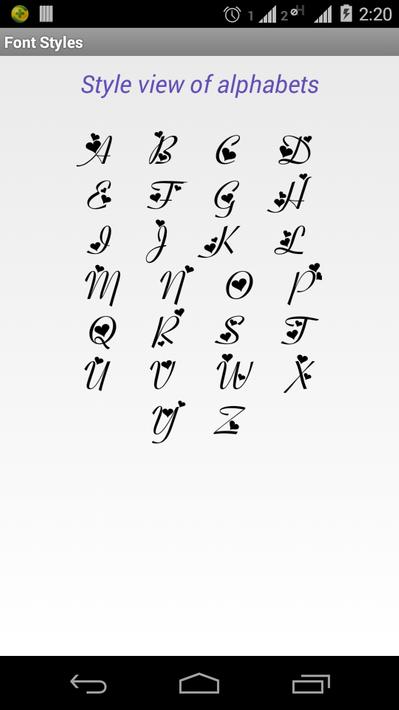 1 2 H 2:20
Font Styles
Style view of alphabets
A B C D
E F G H
I J K L
M N O P
Q R S T
U V W X
Y Z